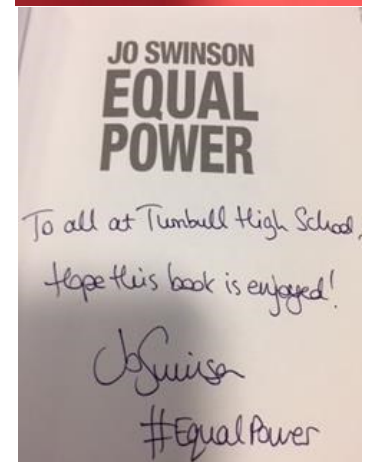 JO SWINSON
EQUAL
POWER
To all at Turnbull High School,
Hope this book is enjoyed!
Jo Swinson
#EqualPower